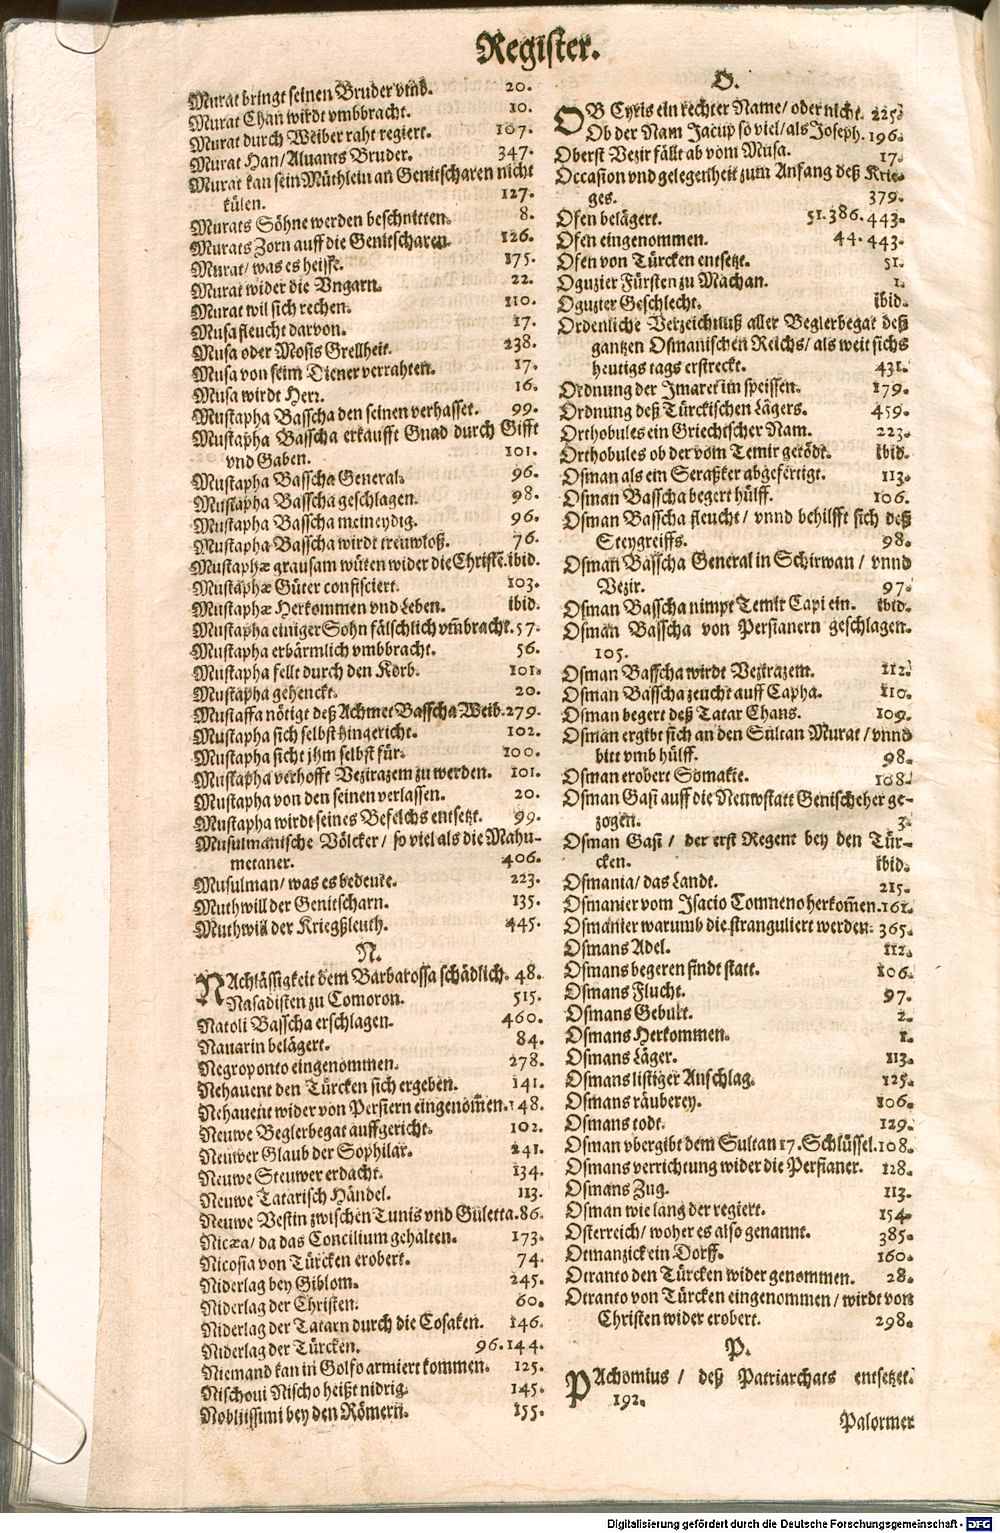 Register.
Murat bringt seinen Bruder vmb. 20.
Murat Chan wirdt vmbbracht. 10.
Murat durch Weiber raht regiert. 107.
Murat Han/Aluants Bruder. 347.
Murat kan sein Müthlein an Genitscharen nicht
külen. 127.
Murats Söhne werden beschnitten. 8.
Murats Zorn auff die Genitscharen. 126.
Murat/was es heisse. 175.
Murat wider die Vngarn. 22.
Murat wil sich rechen. 110.
Musa fleucht darvon. 17.
Musa oder Mosis Grellheit. 238.
Musa von seim Diener verrahten. 17.
Musa wirdt Herr. 16.
Mustapha Basscha den seinen verhasset. 99.
Mustapha Basscha erkaufft Gnad durch Gifft
vnd Gaben. 101.
Mustapha Basscha General. 96.
Mustapha Basscha geschlagen. 98.
Mustapha Basscha meineydig. 96.
Mustapha Basscha wirdt treuwloß. 76.
Mustaphæ grausam wüten wider die Christẽ. ibid.
Mustaphæ Güter confisciert. 103.
Mustaphæ Herkommen vnd Leben. ibid.
Mustapha einiger Sohn fälschlich vm̃bracht. 57.
Mustapha erbärmlich vmbbracht. 56.
Mustapha fellt durch den Korb. 101.
Mustapha gehenckt. 20.
Mustaffa nötigt deß Achmet Basscha Weib. 279.
Mustapha sich selbst hingericht. 102.
Mustapha sicht jhm selbst für. 100.
Mustapha verhofft Vezirazem zu werden. 101.
Mustapha von den seinen verlassen. 20.
Mustapha wirdt seines Befelchs entsetzt. 99.
Musulmanische Völcker/so viel als die Mahu-
metaner. 406.
Musulman/was es bedeute. 223.
Muthwill der Genitscharn. 135.
Muthwill der Kriegßleuth. 445.
N.
NAchlässigkeit dem Barbarossa schädlich. 48.
Nasadisten zu Comoron. 515.
Natoli Basscha erschlagen. 460.
Nauarin belägert. 84.
Negroponto eingenommen. 278.
Nehauent den Türcken sich ergeben. 141.
Nehauent wider von Persiern eingenom̃en. 148.
Neuwe Beglerbegat auffgericht. 102.
Neuwer Glaub der Sophilar. 241.
Neuwe Steuwer erdacht. 134.
Neuwe Tatarisch Händel. 113.
Neuwe Vestin zwischen Tunis vnd Guletta. 86.
Nicæa/da das Concilium gehalten. 173.
Nicosia von Türcken erobert. 74.
Niderlag bey Giblom. 245.
Niderlag der Christen. 60.
Niderlag der Tatarn durch die Cosaken. 146.
Niderlag der Türcken. 96.144.
Niemand kan in Golfo armiert kommen. 125.
Nischoui Nischo heißt nidrig. 145.
Nobliissimi bey den Römern. 155.
O.
OB Cyris ein rechter Name/oder nicht. 225.
Ob der Nam Jacup so viel/als Joseph. 196.
Oberst Vezir fällt ab vom Musa. 17.
Occasion vnd gelegenheit zum Anfang deß Krie-
ges. 379.
Ofen belägert. 51.386.443.
Ofen eingenommen. 44.443.
Ofen von Türcken entsetzt. 51.
Oguzier Fürsten zu Machan. 1.
Oguzier Geschlecht. ibid.
Ordenliche Verzeichnuß aller Beglerbegat deß
gantzen Osmanischen Reichs/als weit sichs
heutigs tags erstreckt. 431.
Ordnung der Imaret im speissen. 179.
Ordnung deß Türckischen Lägers. 459.
Orthobules ein Griechischer Nam. 223.
Orthobules ob der vom Temir getödt. ibid.
Osman als ein Seraßker abgefertigt. 113.
Osman Basscha begert hülff. 106.
Osman Basscha fleucht/vnnd behilfft sich deß
Steygreiffs. 98.
Osman Basscha General in Schirwan/vnnd
Vezir. 97.
Osman Basscha nimpt Temir Capi ein. ibid.
Osman Basscha von Persianern geschlagen.
105.
Osman Basscha wirdt Vezirazem. 112.
Osman Basscha zeucht auff Capha. 110.
Osman begert deß Tatar Chans. 109.
Osman ergibt sich an den Sultan Murat/vnnd
bitt vmb hülff. 98.
Osman erobert Somakie. 108.
Osman Gasi auff die Neuwstatt Genischeher ge-
zogen. 3.
Osman Gasi/der erst Regent bey den Tür-
cken. ibid.
Osmania/das Landt. 215.
Osmanier vom Isacio Comneno herkom̃en. 161.
Osmanier warumb die stranguliert werden. 365.
Osmans Adel. 112.
Osmans begeren findt statt. 106.
Osmans Flucht. 97.
Osmans Geburt. 2.
Osmans Herkommen. 1.
Osmans Läger. 113.
Osmans listiger Anschlag. 125.
Osmans räuberey. 106.
Osmans todt. 129.
Osman vbergibt dem Sultan 17. Schlüssel. 108.
Osmans verrichtung wider die Persianer. 128.
Osmans Zug. 113.
Osman wie lang der regiert. 154.
Osterreich/woher es also genannt. 385.
Otmanzick ein Dorff. 160.
Otranto den Türcken wider genommen. 28.
Otranto von Türcken eingenommen/wirdt von
Christen wider erobert. 298.
P.
PAchomius/deß Patriarchats entsetzet.
192.
Palormer
Digitalisierung gefördert durch die Deutsche Forschungsgemeinschaft - DFG